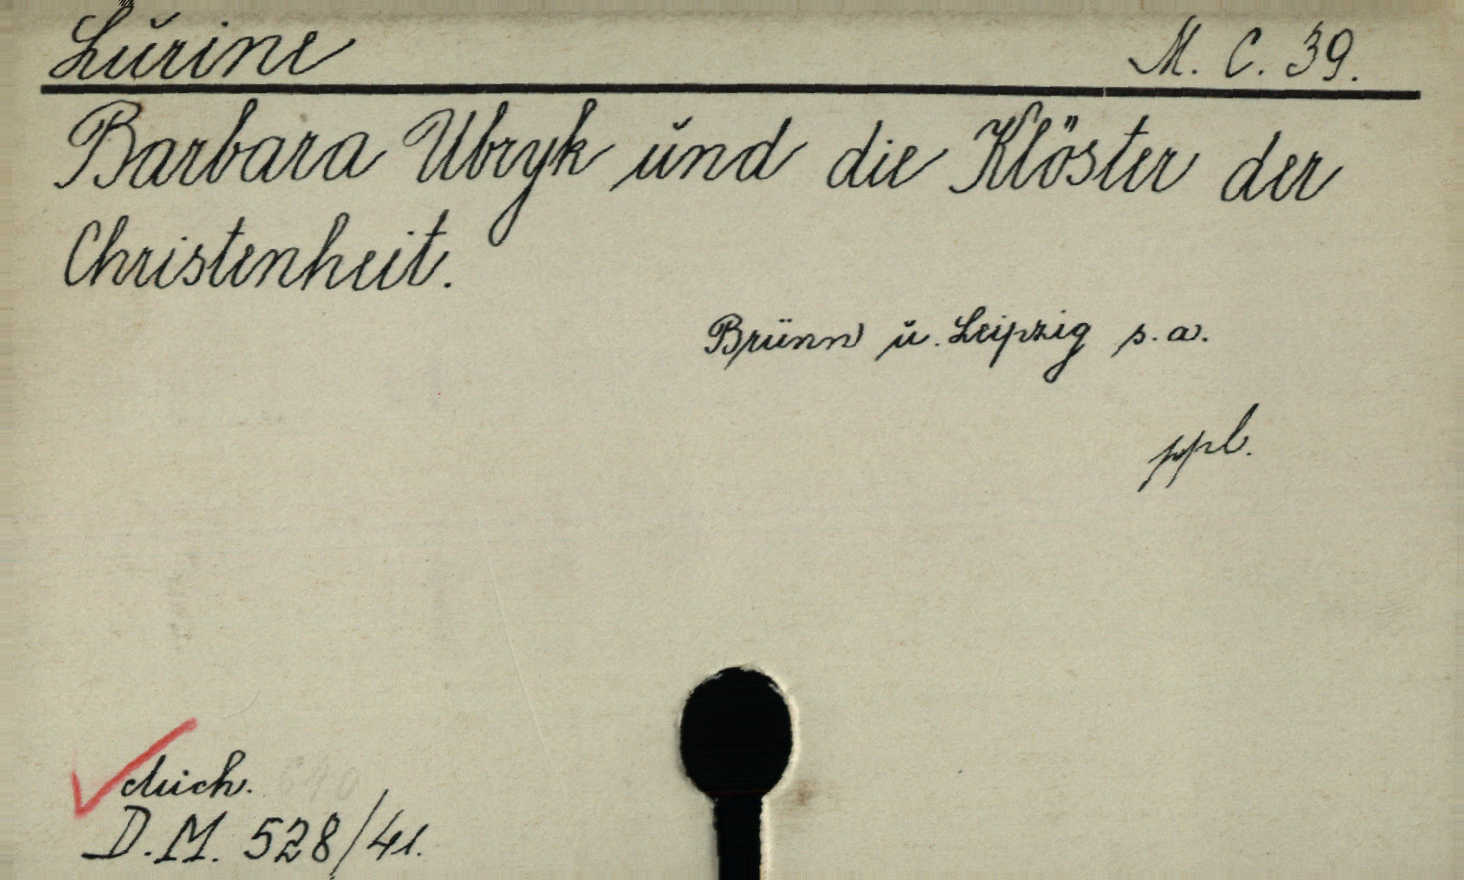 Lurine M. C. 39.
Barbara Ubryk und die Klöster der
Christenheit.
Brünn u. Leipzig s. a.
ppl.
D.M. 528/41.